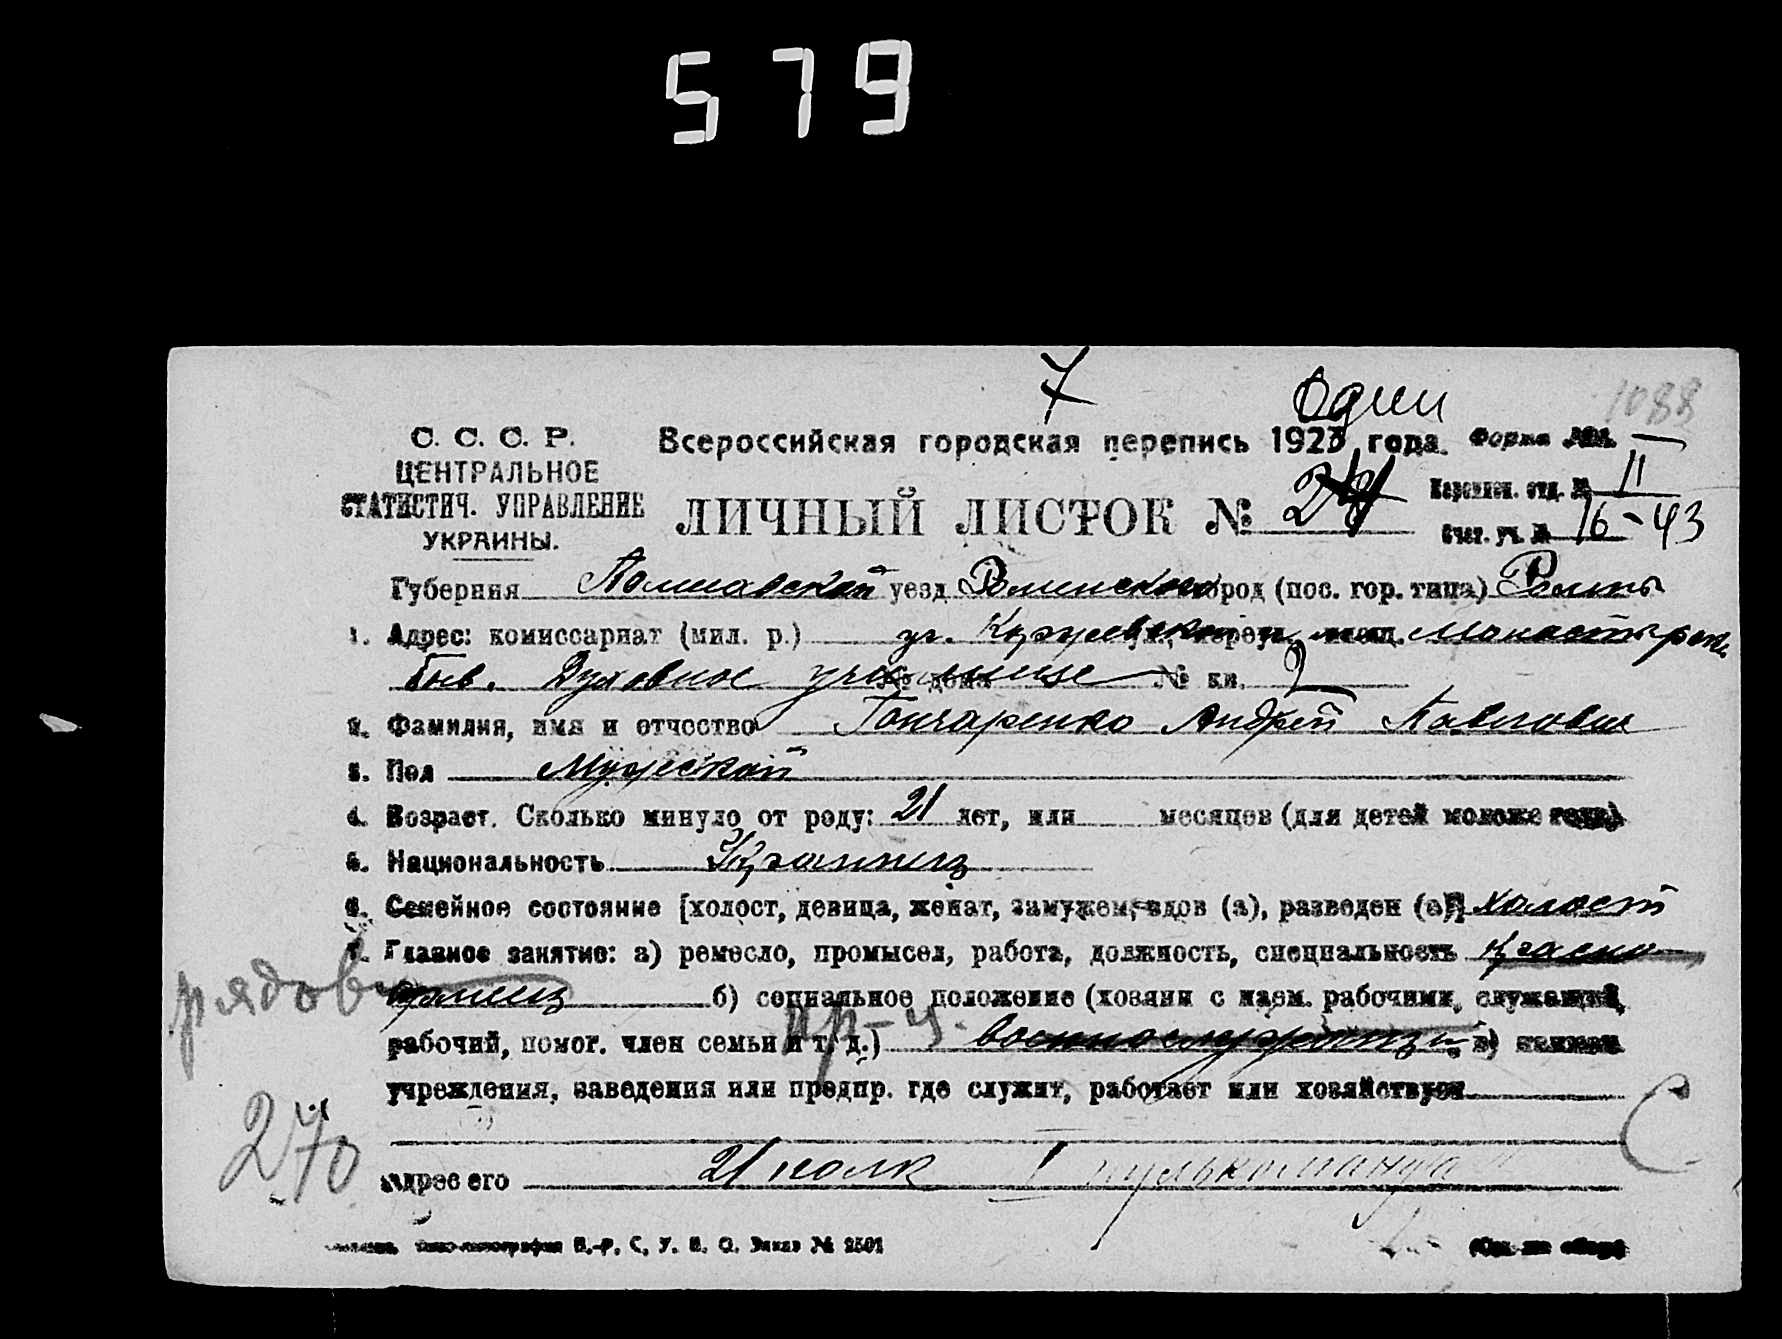 579
7 Один 1088
С. С. С. Р. Всероссийская городская перепись 1923 года. Форма
ЦЕНТРАЛЬНОЕ отд. № II
СТАТИСТИЧ. УПРАВЛЕНИЕ ЛИЧНЫЙ ЛИСТОК №
УКРАИНЫ. Счет. уч. № 16-43
Губерния Полтавской уезд Роменского город (пос. гор. типа) Ромны
1. Адрес: комиссариат (мил. р.) ул. площ.
быв. Духовное училище № дома № кв. 2
2. Фамилия, имя и отчество Гончаренко Андрей Павлович
3. Пол Мужской
4. Возраст. Сколько минуло от роду: 21 лет, или месяцев (для детей моложе года)
5. Национальность Украинец
6. Семейное состояние [холост, девица, женат, замужем, вдов (а), разведен (а)] холост
7. Главное занятие: а) ремесло, промысел, работа, должность, специальность красно-
рядов армеец б) социальное положение (хозяин с наем. рабочими, служащий,
рабочий, помог. член семьи и т. д.) военнослужащий в)
учреждения, заведения или предпр. где служит, работает или хозяйствует
270 С
адрес его 21 полк
Заказ № 2501